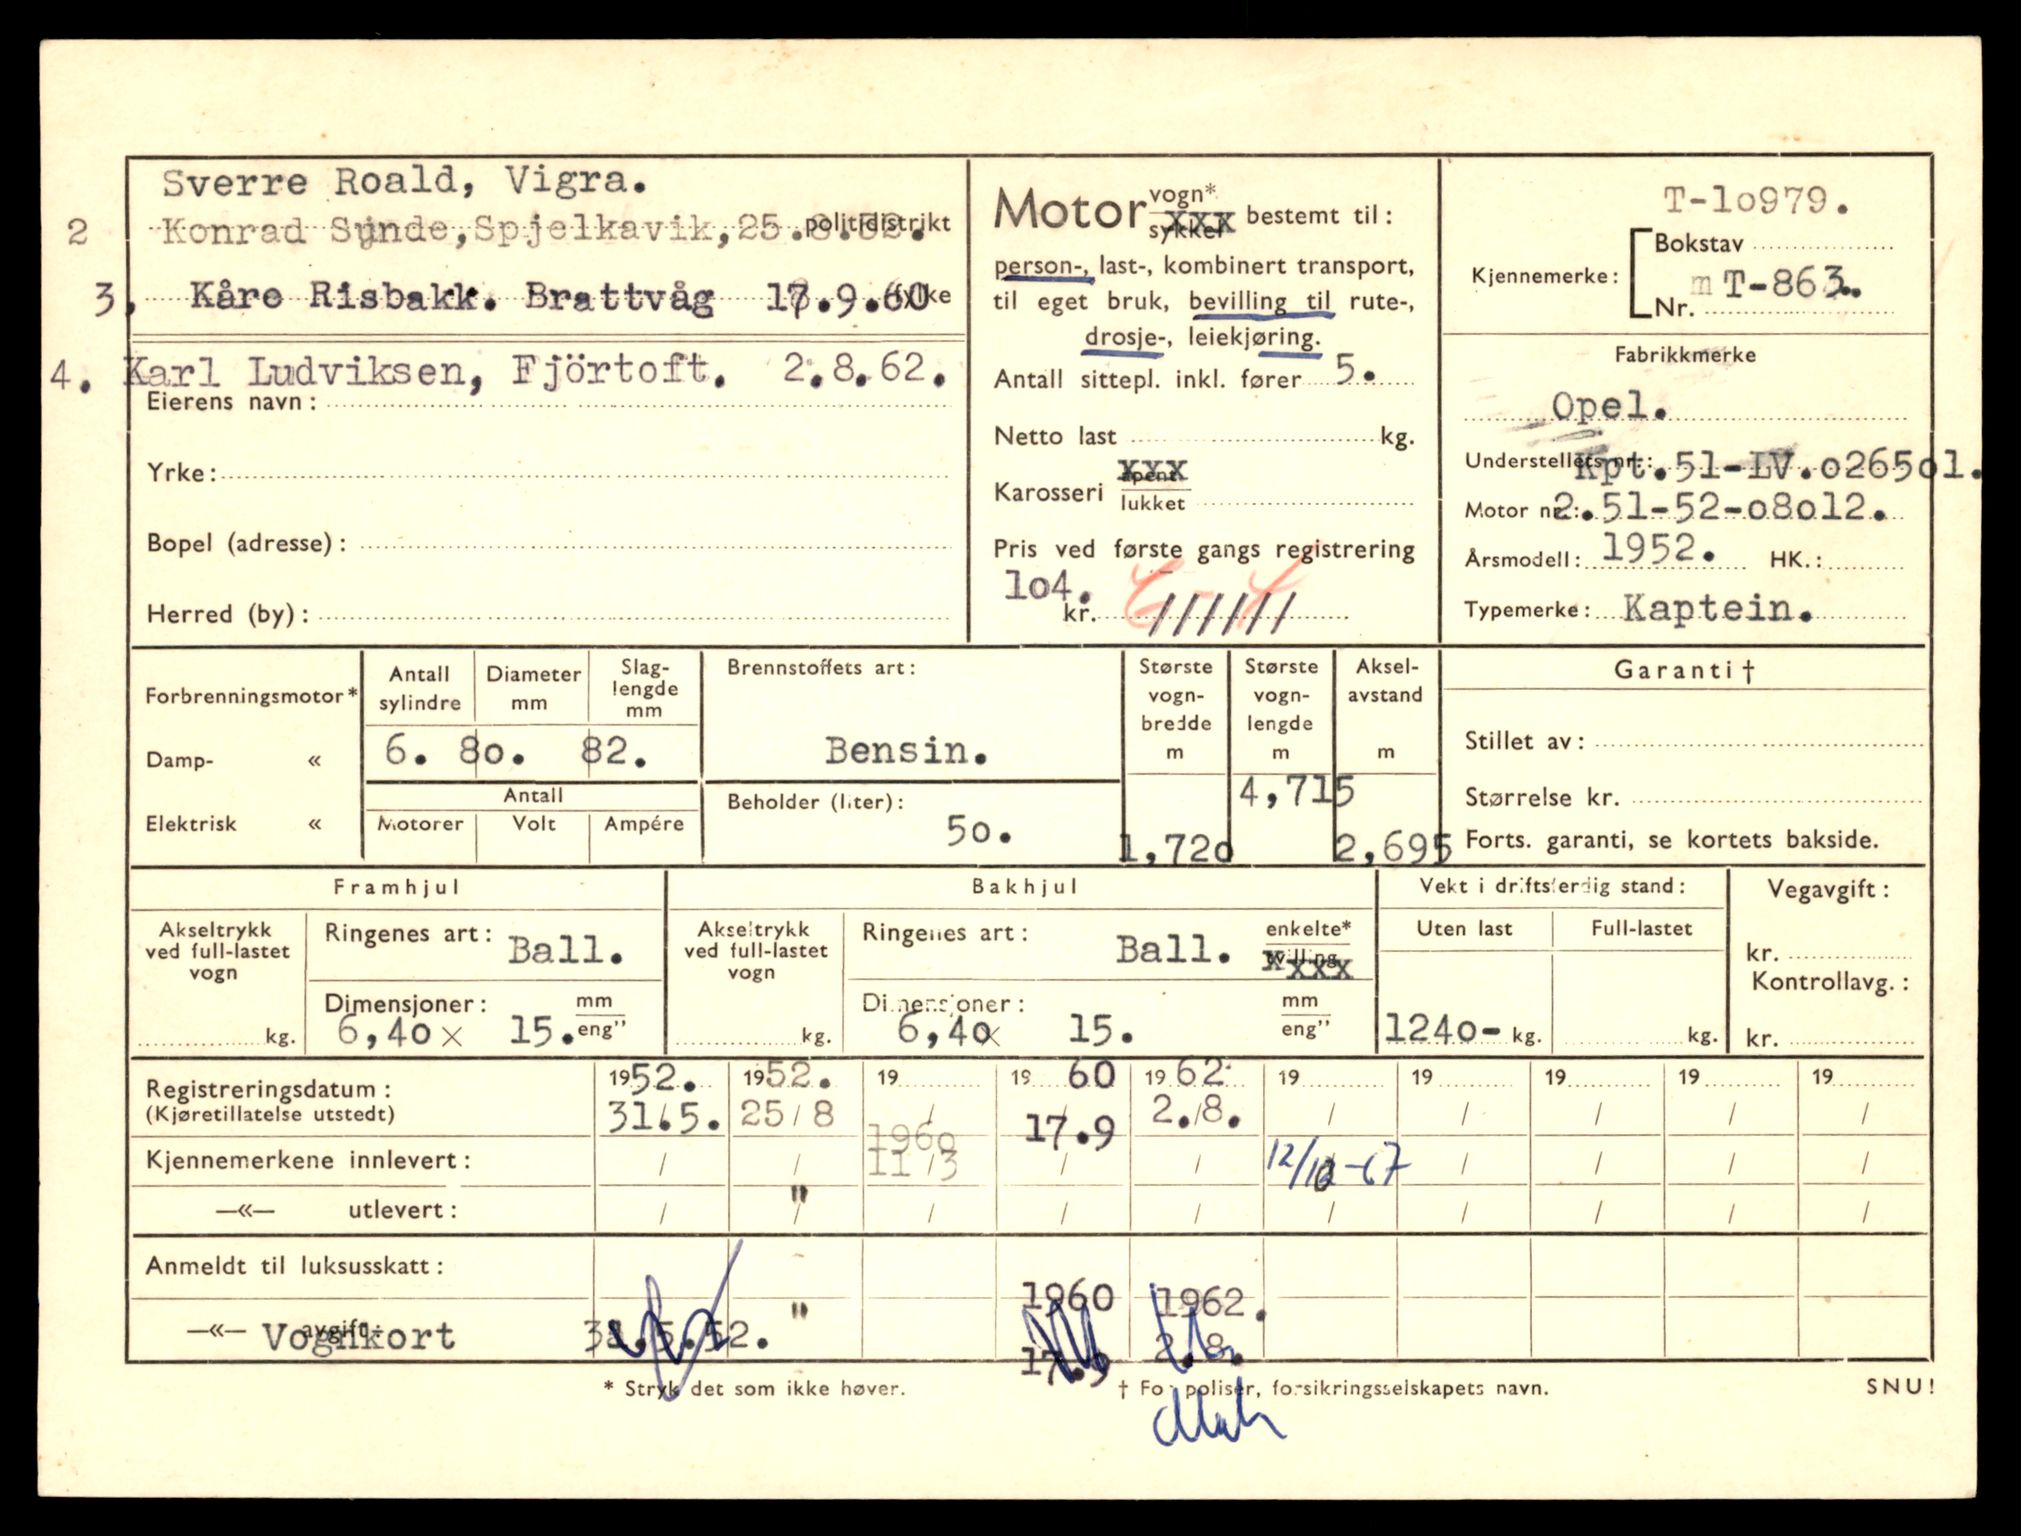 Sverre Roald, Vigra.
2 Konrad Synde, Spjelkavik, 25.8.52. politidistrikt
3, Kåre Risbakk. Brattvåg 17.9.60 fylke
4. Karl Ludviksen, Fjörtoft. 2.8.62.
Eierens navn:
Yrke:
Bopel (adresse):
Herred (by):
Motor vogn* sykkel xxx bestemt til:
person-, last-, kombinert transport,
til eget bruk, bevilling til rute-,
drosje-, leiekjøring.
Antall sittepl. inkl. fører 5.
Netto last kg.
Karosseri åpent xxx
lukket
Pris ved første gangs registrering
1o4.
kr. //////
T-1o979.
Bokstav
Kjennemerke: m T-863.
Nr.
Fabrikkmerke
Opel.
Understellets nr.: Kpt.51-LV.o265o1.
Motor nr.: 2.51-52-o8o12.
Årsmodell: 1952. HK.:
Typemerke: Kaptein.
Forbrenningsmotor*
Damp- «
Elektrisk «
Antall sylindre
Diameter mm
Slag-lengde mm
6. 8o. 82.
Antall
Motorer Volt Ampére
Brennstoffets art:
Bensin.
Beholder (liter):
5o.
Største vogn-bredde m
1,72o
Største vogn-lengde m
4,715
Aksel-avstand m
2,695
Garanti †
Stillet av:
Størrelse kr.
Forts. garanti, se kortets bakside.
Framhjul
Akseltrykk ved full-lastet vogn
kg.
Ringenes art: Ball.
Dimensjoner: mm
6,4o x 15. eng"
Bakhjul
Akseltrykk ved full-lastet vogn
kg.
Ringenes art: Ball. enkelte*
tvilling xxxx
Dimensjoner: mm
6,4o x 15. eng"
Vekt i driftsferdig stand:
Uten last Full-lastet
124o- kg. kg.
Vegavgift:
kr.
Kontrollavg.:
kr.
Registreringsdatum: 1952. 1952. 19 19 60 19 62 19 19 19 19 19
(Kjøretillatelse utstedt) 31.5. 25/8 / 17.9 2./8. / / / / /
196o
Kjennemerkene innlevert: / / 11/3 / / 12/10-67 / / / /
—«— utlevert: / " / / / / / / / /
Anmeldt til luksusskatt:
1960 1962.
—«— avgift: Vognkort 31.5.52. " 17.9 2.8.
* Stryk det som ikke høver. † For poliser, forsikringsselskapets navn. SNU!